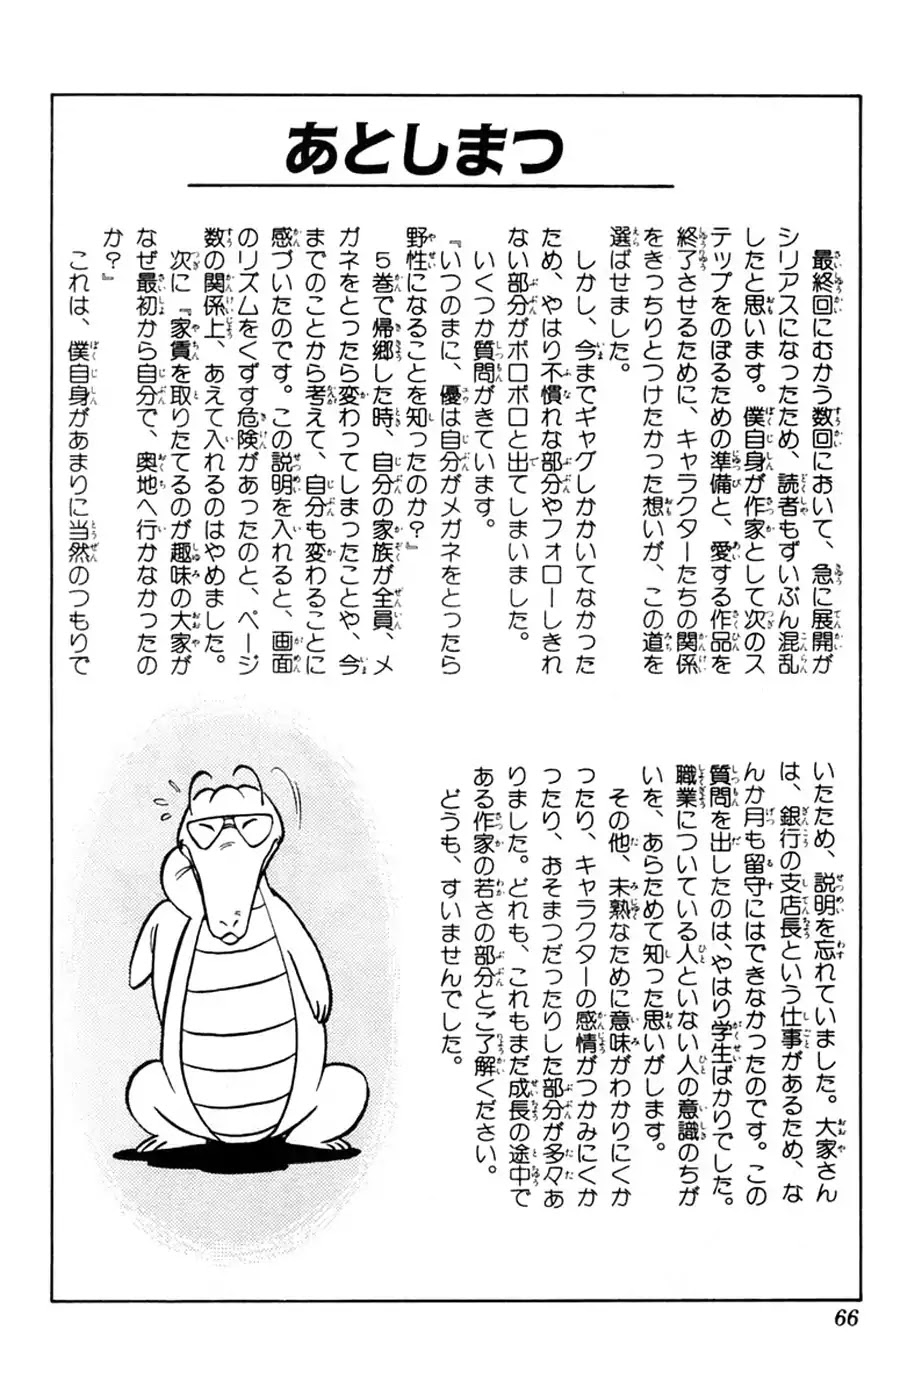 あとしまつ
最終回にむかう数回において、急に展開が
シリアスになったため、読者もずいぶん混乱
したと思います。僕自身が作家として次のス
テップをのぼるための準備と、愛する作品を
終了させるために、キャラクターたちの関係
をきっちりとつけたかった想いが、この道を
選ばせました。
しかし、今までギャグしかかいてなかった
ため、やはり不慣れな部分やフォローしきれ
ない部分がボロボロと出てしまいました。
いくつか質問がきています。
『いつのまに、優は自分がメガネをとったら
野性になることを知ったのか?』
5巻で帰郷した時、自分の家族が全員、メ
ガネをとったら変わってしまったことや、今
までのことから考えて、自分も変わることに
感づいたのです。この説明を入れると、画面
のリズムをくずす危険があったのと、ページ
数の関係上、あえて入れるのはやめました。
次に『家賃を取りたてるのが趣味の大家が
なぜ最初から自分で、奥地へ行かなかったの
か?』
これは、僕自身があまりに当然のつもりで
いたため、説明を忘れていました。大家さん
は、銀行の支店長という仕事があるため、な
んか月も留守にはできなかったのです。この
質問を出したのは、やはり学生ばかりでした。
職業についている人といない人の意識のちが
いを、あらためて知った思いがします。
その他、未熟なために意味がわかりにくか
ったり、キャラクターの感情がつかみにくか
ったり、おそまつだったりした部分が多々あ
りました。どれも、これもまだ成長の途中で
ある作家の若さの部分とご了解ください。
どうも、すいませんでした。
66